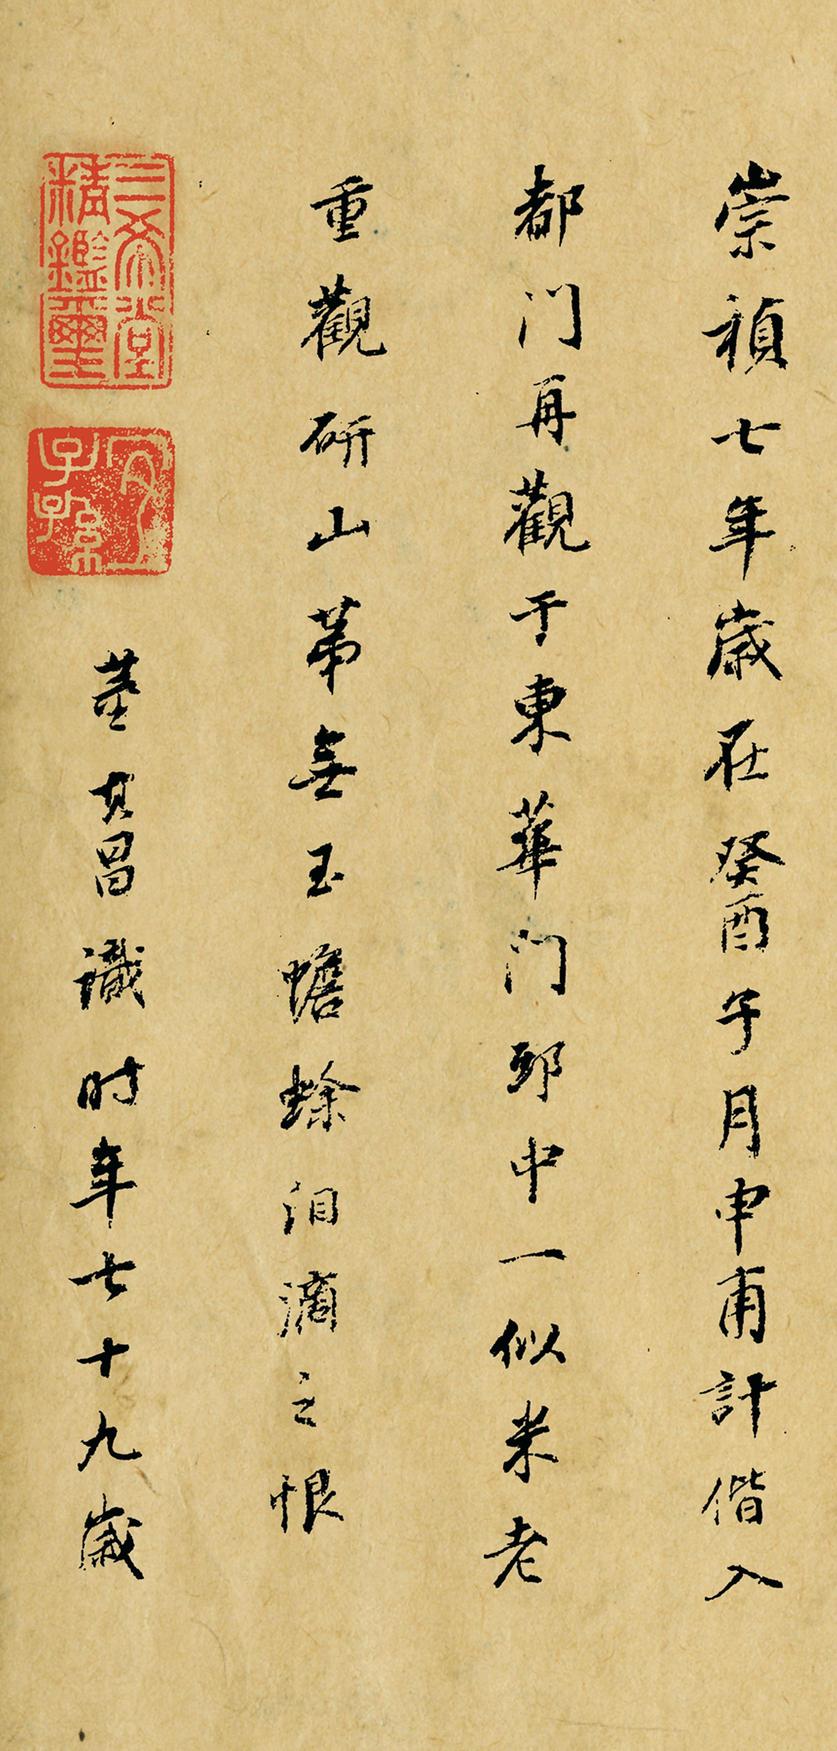 崇禎七年歲在癸酉子月申甫計偕入
都門再觀于東華門邸中一似米老
重觀研山第無玉蟾蜍泪滴之恨
董其昌識時年七十九歲
三希堂
精鑑璽
宜
子孫